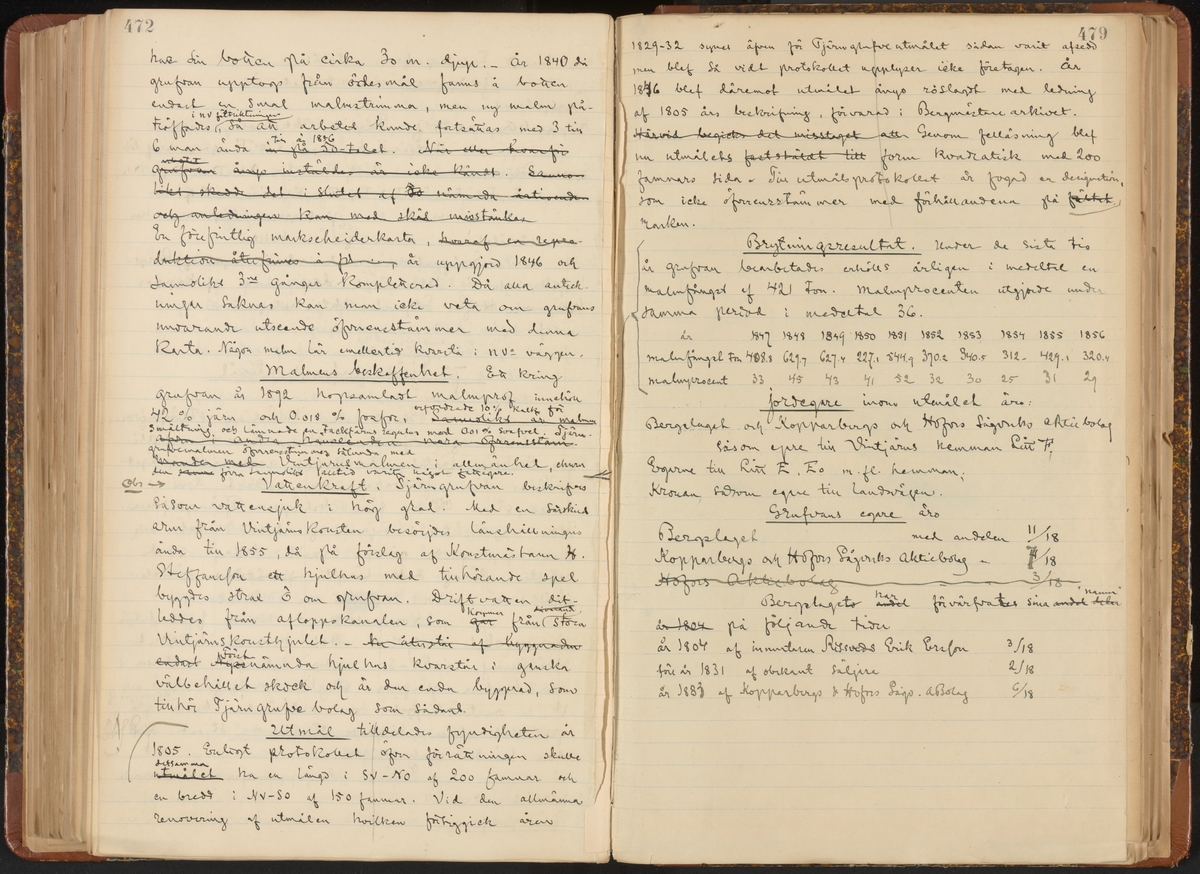 472
har sin botten på cirka 30 m. djup. – År 1840 då
grufvan upptogs från ödesmål fanns å botten
endast en smal malmstrimma, men ny malm på-
i NV fältriktningen
träffades, så att arbetet kunde fortsättas med 3 till
till år 1856
6 man ända in på 50-talet. När eller hvarför
grufvan ånyo instäldes är icke kändt. Sanno-
likt skedde det i slutet af de nämnda
och anledningen kan med skäl misstänkas
En förefintlig markscheiderkarta, hvaraf en repro-
duktion återfinnes å pl är uppgjord 1846 och
samolikt 3ne gånger kompletterad. Då alla anteck-
ningar saknas kan man icke veta om grufvans
nuvarande utseende öfverensstämmer med denna
karta. Någon malm lär emellertid kvarstå i NVa väggen.
Malmens beskaffenhet. Ett kring
grufvan år 1892 hopsamladt malmprof innehöll
42 % järn och 0.018 % fosfor, erfordrade 10% kalk för
smältning och lämnade en tackjärns regulus med 0.01 % svafvel. Tjärn-
grufvemalmen öfverensstämmer sålunda med
Vintjärnsmalmen i allmänhet, ehuru
Obs →
Vattenkraft. Tjärngrufvan beskrifves
såsom vattensjuk i hög grad. Med en särskild
arm från Vintjärnskonsten besörjdes länshållningen
ända till 1855, då på förslag af Konstmästaren H.
Steffansson ett hjulhus med tillhörande spel
byggdes strax Ö om grufvan. Driftvatten dit-
kommer
leddes från afloppskanalen, som går från stora
Vintjärnskonsthjulet. – Nu återstår af byggnader
endast nämnda hjulhus kvarstår i ganska
välbehållet skick och är den enda byggnad, som
tillhör Tjärngrufve bolag som sådant.
Utmål tilldelades fyndigheten år
1805. Enligt protokollet öfver förrättningen skulle
detsamma
utmålet ha en längd i SV–NO af 200 famnar och
en bredd i NV–SO af 150 famnar. Vid den allmänna
renovering af utmålen hvilken förtiggick åren
479
1829–32 synes äfven för Tjärngrufveutmålet sådan varit afsedd
men blef så vidt protokollet upplyser icke företagen. År
1876 blef däremot utmålet ånyo röslagdt med ledning
af 1805 års beskrifning, förvarad i Bergmästare arkivet.
Härvid begicks det misstaget att Genom felläsning blef
nu utmålets fastställdt till form kvadratisk med 200
famnars sida. Till utmålsprotokollet är fogad en designation,
som icke öfverensstämmer med förhållandena på fältet
marken.
Brytningsresultat. Under de sista tio
år grufvan bearbetades erhölls årligen i medeltal en
malmfångst af 421 Ton. Malmprocenten utgjorde under
samma period i medeltal 36.
år 1847 1848 1849 1850 1851 1852 1853 1854 1855 1856
malmfångst Ton 408.8 627.7 627.4 227.1 544.9 370.2 340.5 312- 429.1 320.4
malmprocent 33 45 43 41 52 32 30 25 31 29
Jordegare inom utmålet äro:
Bergslaget och Kopparbergs och Hofors Sågverks Aktiebolag
såsom egare till Vintjärns hemman Litt F,
Egarne till Litt E, Eo m.fl. hemman,
Kronan såsom egare till landsvägen.
Grufvans egare äro
Bergslaget med andelen 11/18
Kopparbergs och Hofors Sågverks Aktiebolag – 7/18
Hofors Aktiebolag 3/18
har
Bergslagets andel förvärfvates sina andel
år 1804 på följande tider
år 1804 af inmutaren Rusved Erik Ersson 3/18
före år 1831 af obekant säljare 2/18
år 1883 af Kopparbergs & Hofors Sågv. ABolag 6/18